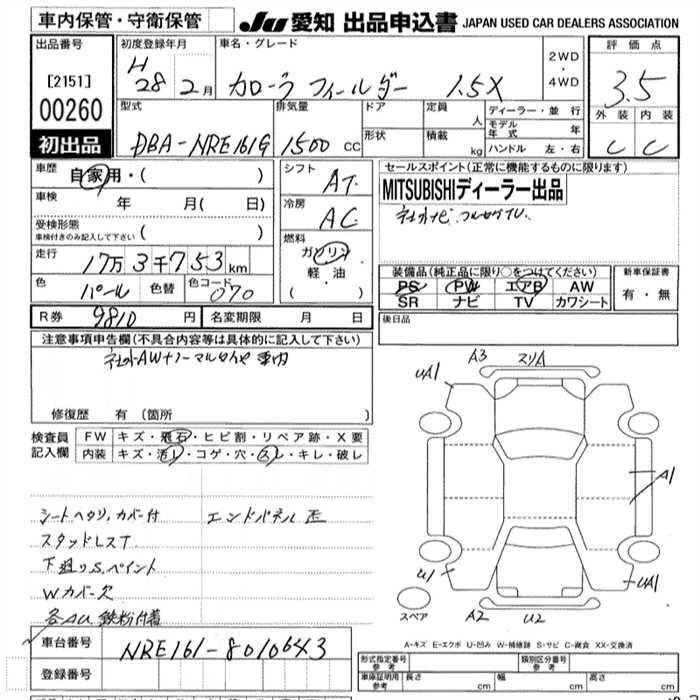 車内保管・守衛保管
JU 愛知 出品申込書 JAPAN USED CAR DEALERS ASSOCIATION
出品番号
[2151]
00260
初出品
初度登録年月
H 28 2月
車名・グレード
カローラ フィールダー 1.5X
2WD
・
4WD
評価点
3.5
外装 内装
C C
型式
DBA-NRE161G
排気量
1500 CC
ドア
形状
定員 人
積載 kg
ディーラー・並行
モデル年式 年
ハンドル 左・右
車歴
自家用・( )
車検 年 月( 日)
受検形態
車検付きのみ記入して下さい ( )
走行
17万3千753km
色 パール 色替 色コード 070
シフト
AT
冷房
AC
燃料
ガソリン
軽油
( )
セールスポイント(正常に機能するものに限ります)
MITSUBISHIディーラー出品
社外ナビ フルセグTV.
装備品(純正品に限り○をつけてください)
PS PW エアB AW
SR ナビ TV カワシート
新車保証書
有・無
R券 9810円 名変期限 月 日
後日品
注意事項申告欄(不具合内容等は具体的に記入して下さい)
社外AW+ノーマルタイヤ 車内
修復歴 有 (箇所 )
検査員
記入欄
FW キズ・飛石・ヒビ割・リペア跡・X要
内装 キズ・汚レ・コゲ・穴・スレ・キレ・破レ
シートヘタリ,カバー付 エンドパネル歪
スタッドレスT
下廻りS.ペイント
Wカバー欠
各AU 鉄粉付着
A3 スリA
UA1
A1
U1
UA1
スペア
A2 U2
A-キズ E-エクボ U-凹み W-補修跡 S-サビ C-腐食 XX-交換済
車台番号 NRE161-8010643
登録番号
形式指定番号
参考
類別区分番号
車庫証明用
参考
長さ cm 幅 cm 高さ cm